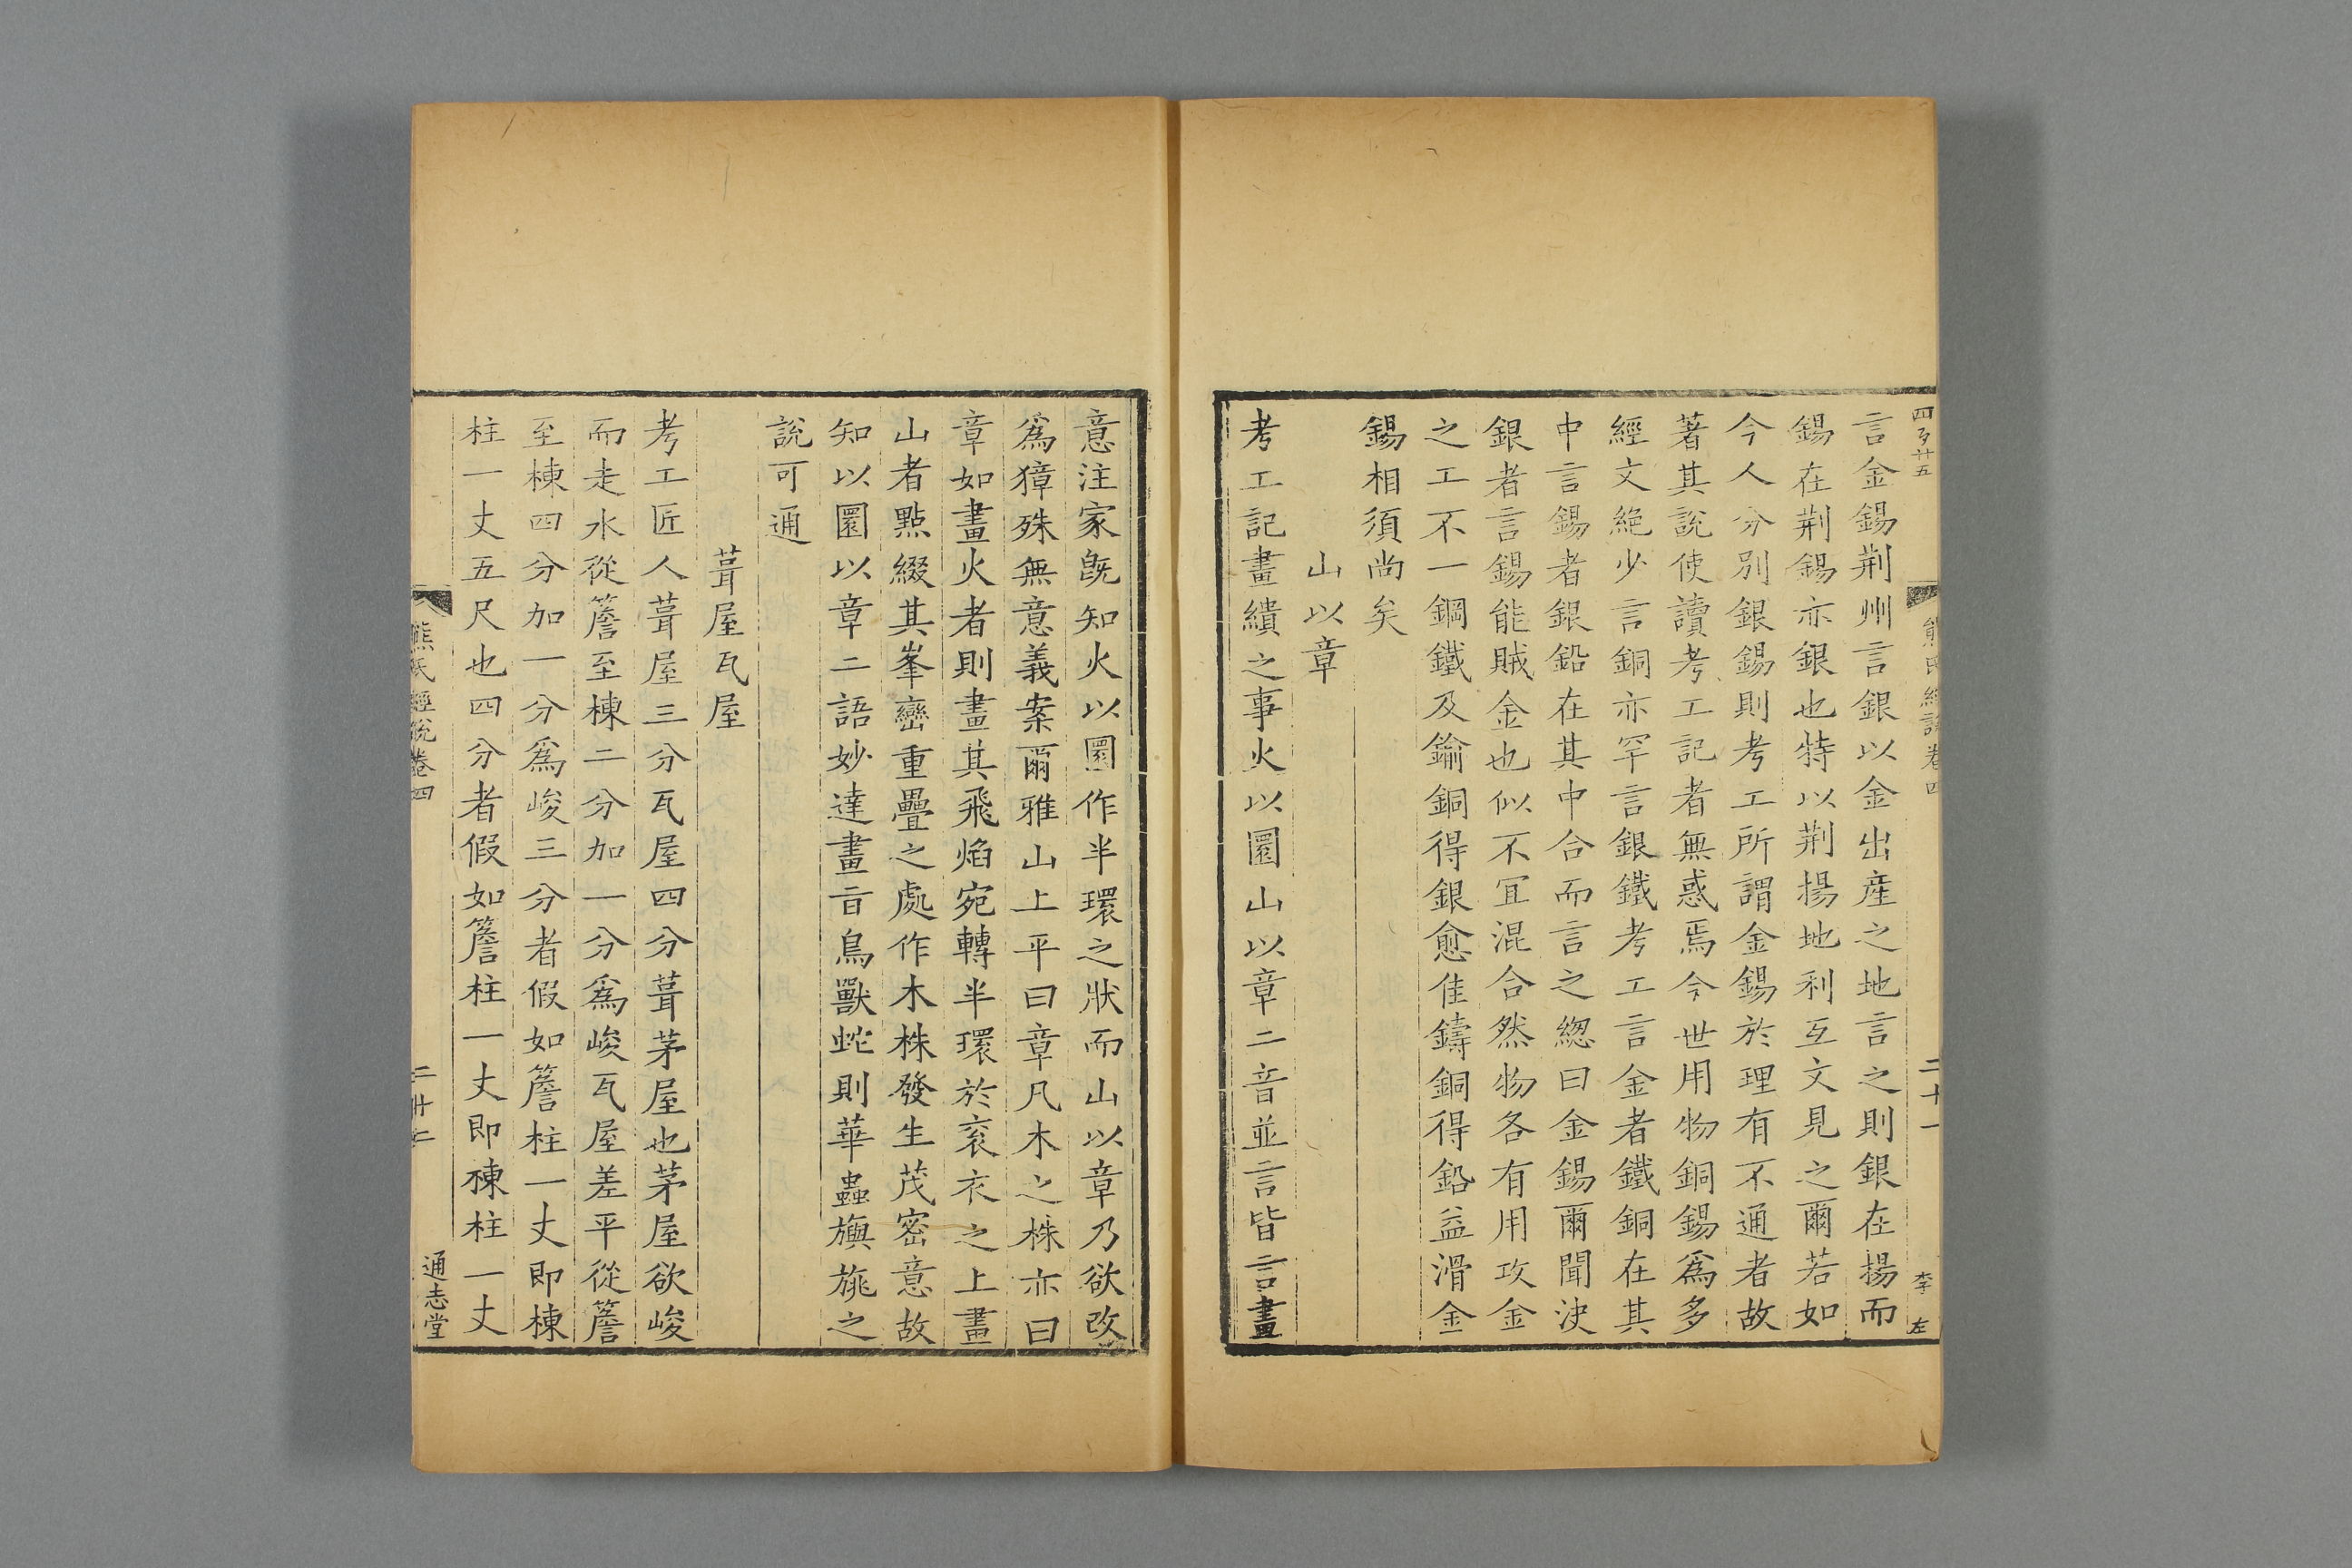 四百廿五
熊氏經說卷四
二十一
李
左
言金錫荆州言銀以金出産之地言之則銀在揚而
錫在荆錫亦銀也特以荆揚地利互文見之爾若如
今人分別銀錫則考工所謂金錫於理有不通者故
著其説使讀考工記者無惑焉今世用物銅錫爲多
經文絶少言銅亦罕言銀鐵考工言金者鐵銅在其
中言錫者銀鉛在其中合而言之緫曰金錫爾聞決
銀者言錫能賊金也似不冝混合然物各有用攻金
之工不一鋼鐵及鍮銅得銀愈佳鑄銅得鉛益滑金
錫相須尚矣
山以章
考工記畫繢之事火以圜山以章二音並言皆言畫
意注家旣知火以圜作半環之狀而山以章乃欲改
爲獐殊無意義案爾雅山上平曰章凡木之株亦曰
章如畫火者則畫其飛焰宛轉半環於衮衣之上畫
山者點綴其峯巒重疊之處作木株發生茂密意故
知以圜以章二語妙達畫旨鳥獸蛇則華蟲旟旐之
説可通
葺屋瓦屋
考工匠人葺屋三分瓦屋四分葺茅屋也茅屋欲峻
而走水從簷至棟二分加一分爲峻瓦屋差平從簷
至棟四分加一分爲峻三分者假如簷柱一丈即棟
柱一丈五尺也四分者假如簷柱一丈即棟柱一丈
熊氏經說卷四
二十二
通志堂